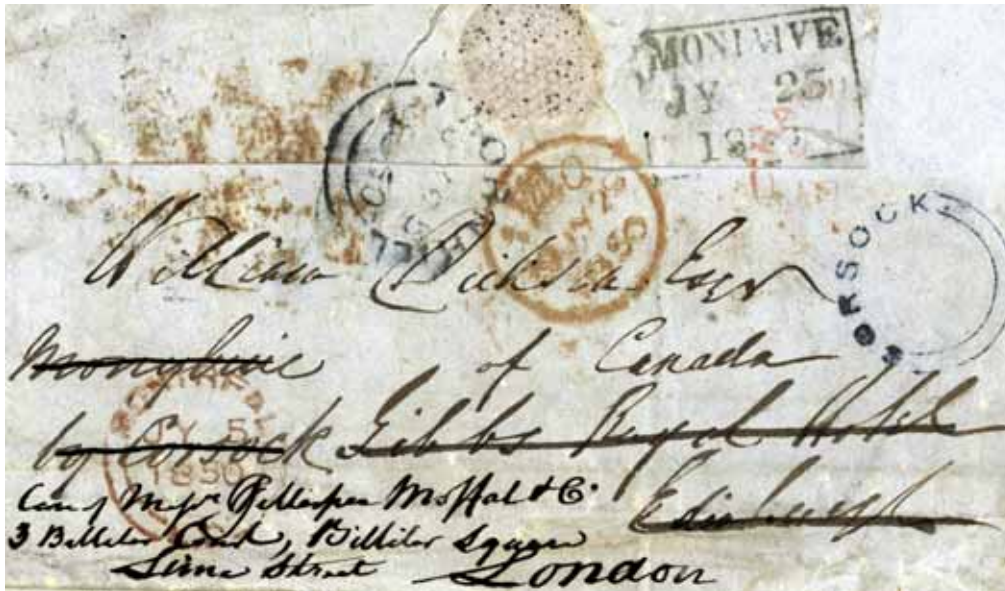 MONIAIVE
JY 25
18
CORSOCK
William Dickson Esqr
Monyhive of Canada
by Corsock Gibbs Royal Hotel
JY 5
1850
Edinburgh
Care of Messrs Gillespie Moffat & Co.
3 Billiter Court, Billiter Square
Lime Street London